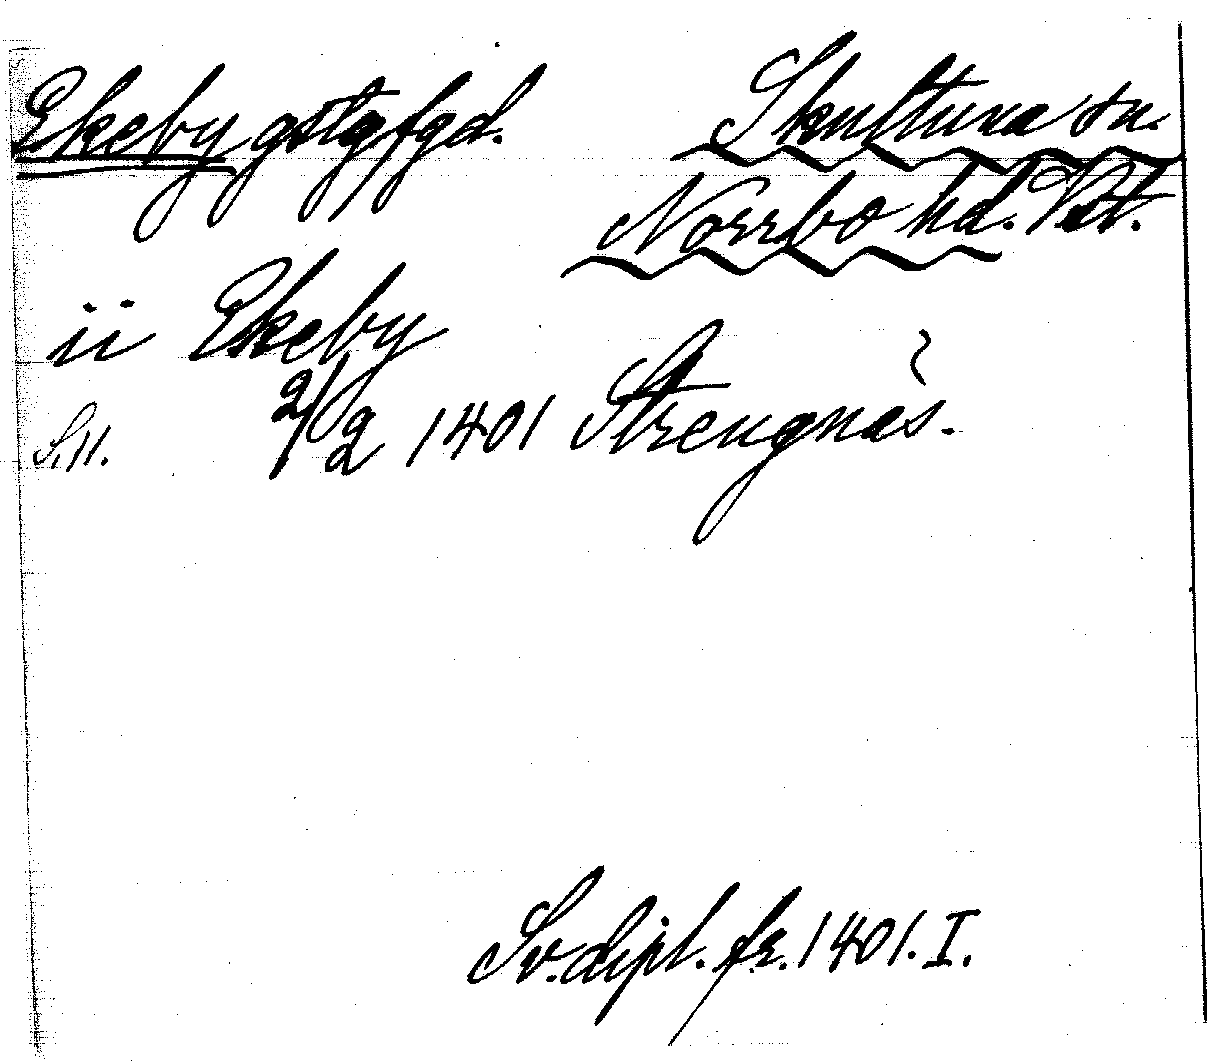 Ekeby gstgfgd. Skultuna sn.
Norrbo hd. Vstl.
ii Ekeby
S. 11. 2/2 1401 Strengnæs.
Sv. dipl. fr. 1401. I.